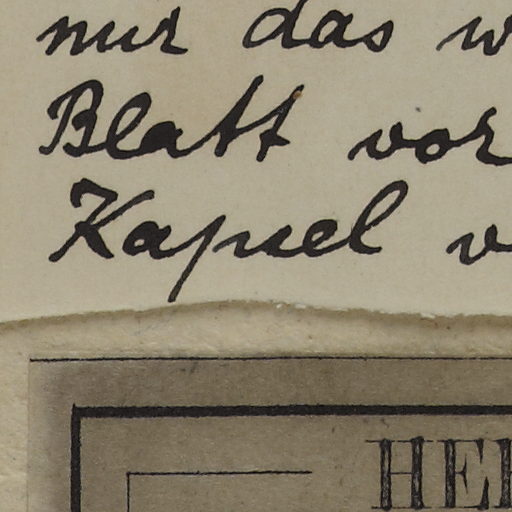 nur das
Blatt vor
Kapsel
HE